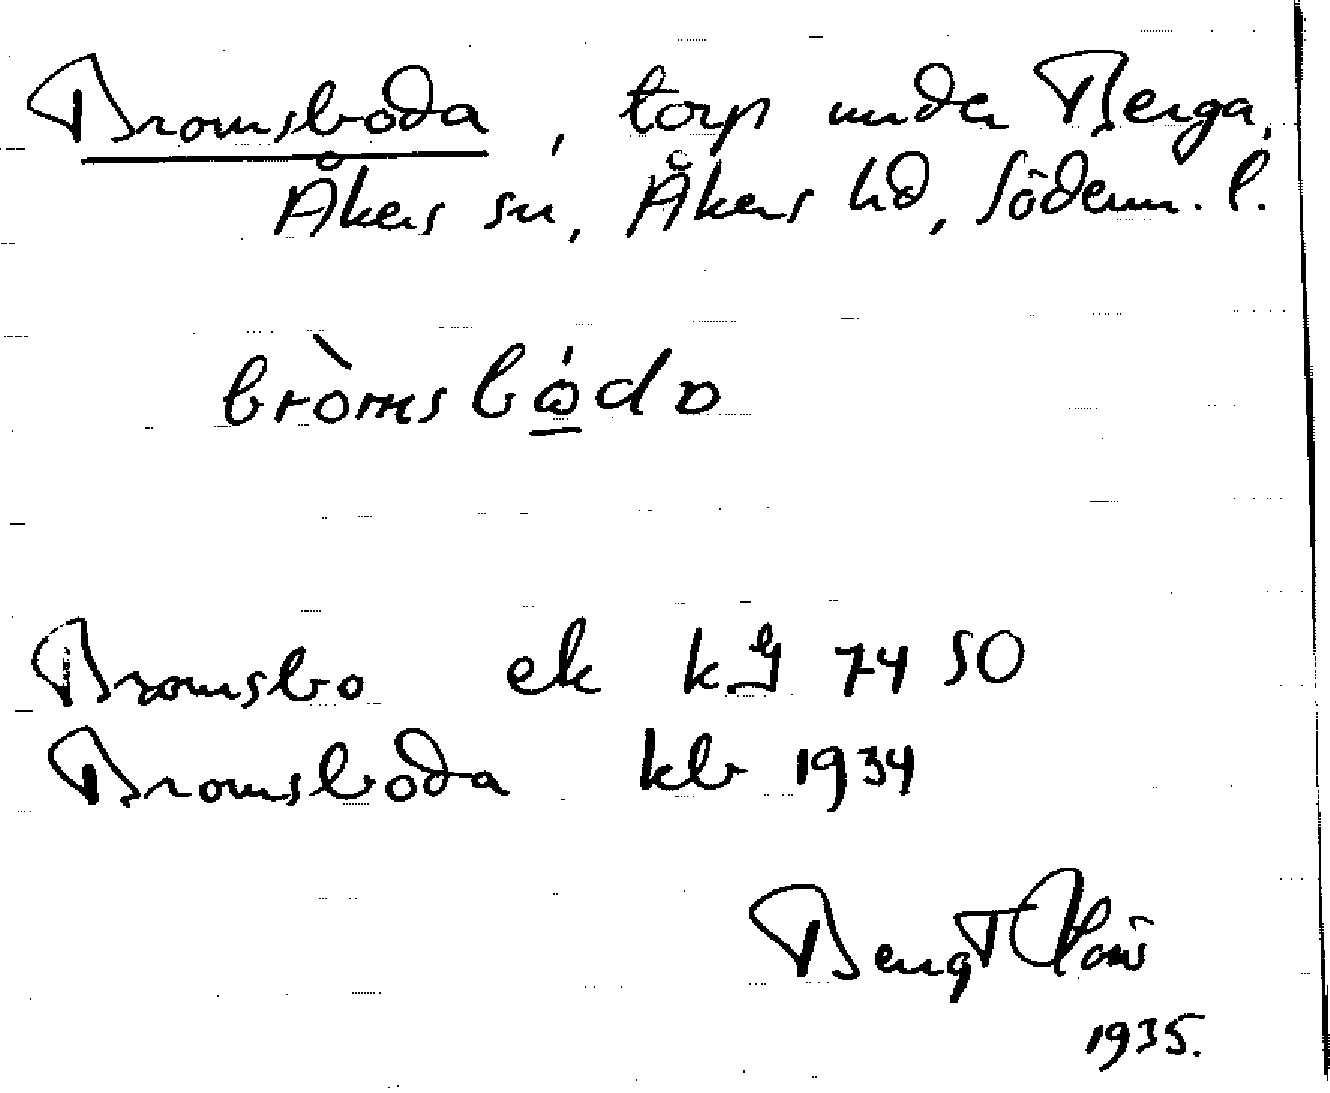 Bromsboda, torp under Berga,
Åkers sn, Åkers hd, Söderm. l.
bròmsbώ̲da
Bromsbo ek kg 74 50
Bromsboda kb 1934
Bengt
1935.